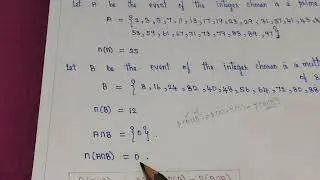 Let A be the event of the integer chosen is a prime
A = {2,3,5,7,11,13,17,19,23,29,31,37,41,43,
53,59,61,67,71,73,79,83,89,97}
n(A) = 25
Let B be the event of the integer chosen is a
B = {8,16,24,32,40,48,56,64,72,80,88
n(B) = 12
A∩B = {0}.
n(A∩B) = 0.